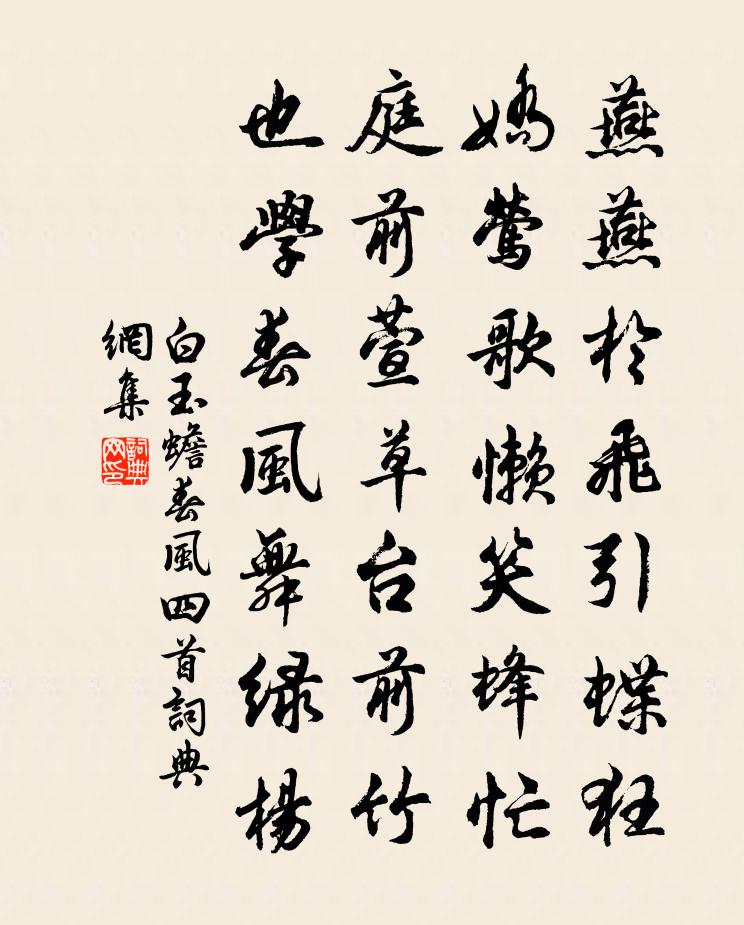 燕燕於飛引蝶狂
嬌鶯歌懶笑蜂忙
庭前萱草台前竹
也學春風舞綠楊
白玉蟾春風四首詞典
網集
詞典網印